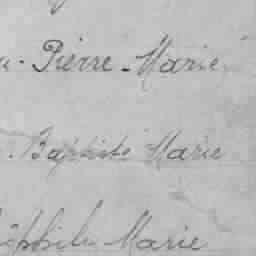 Pierre-Marie
Baptiste Marie
Marie